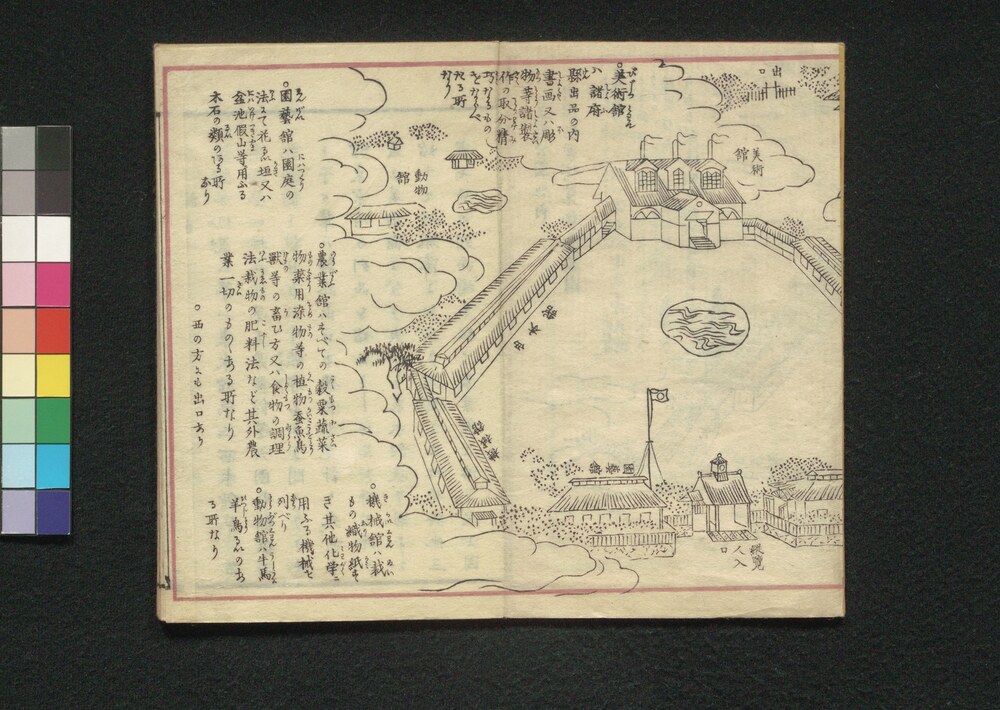 ○美術館
ハ諸府
縣出品の内
書画又ハ彫
物等諸製
作の取分精
巧なるもの
をならべ
たる所
なり
出口
美術館
動物館
○園藝館ハ園庭の
法にて花る垣又ハ
盆池假山等用ふる
木石の類のある所
なり
○農業館ハすべての穀粟蔬菜
物薬用染物等の植物蚕魚鳥
獣等の畜ひ方又ハ食物の調理
法栽物の肥料法など其外農
業一切のものゝある所なり
○西の方にも出口あり
○機械館ハ裁
もの織物紙す
き其他化学に
用ふる機械を
列べり
○動物館ハ牛馬
羊鳥るいのあ
る所なり
園藝館
縦覧人入口